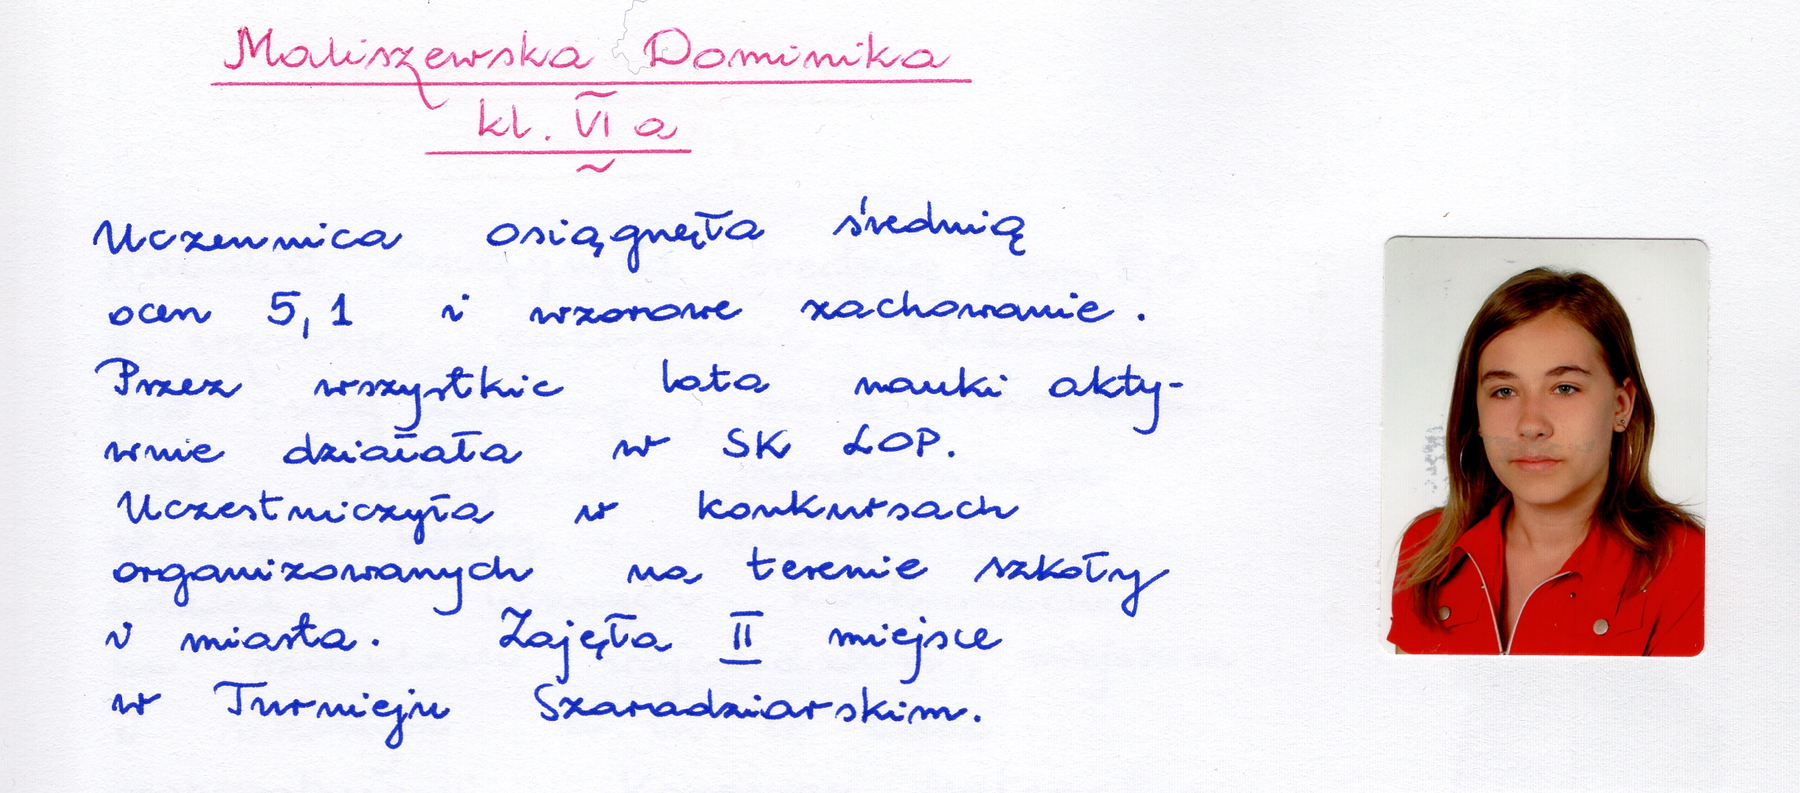 Maliszewska Dominika
kl. VI a
Uczennica osiągnęła średnią
ocen 5,1 i wzorowe zachowanie.
Przez wszystkie lata nauki akty-
wnie działała w SK LOP.
Uczestniczyła w konkursach
organizowanych na terenie szkoły
i miasta. Zajęła II miejsce
w Turnieju Szaradziarskim.